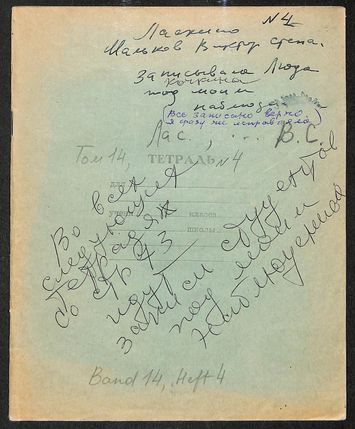 №4
Ласкино
Мальков Виктор Степа.
Записывала Люда
Кочкина
под моим
наблюд.
Все записано верно
я сразу же исправляла
Лас. , ... В.С.
Том 14, ТЕТРАДЬ №4
для
учени класса
школы
Во всех
следующих
тетрадях
со стр 43
идут
записи студентов
под моим
наблюдением
Band 14, Heft 4